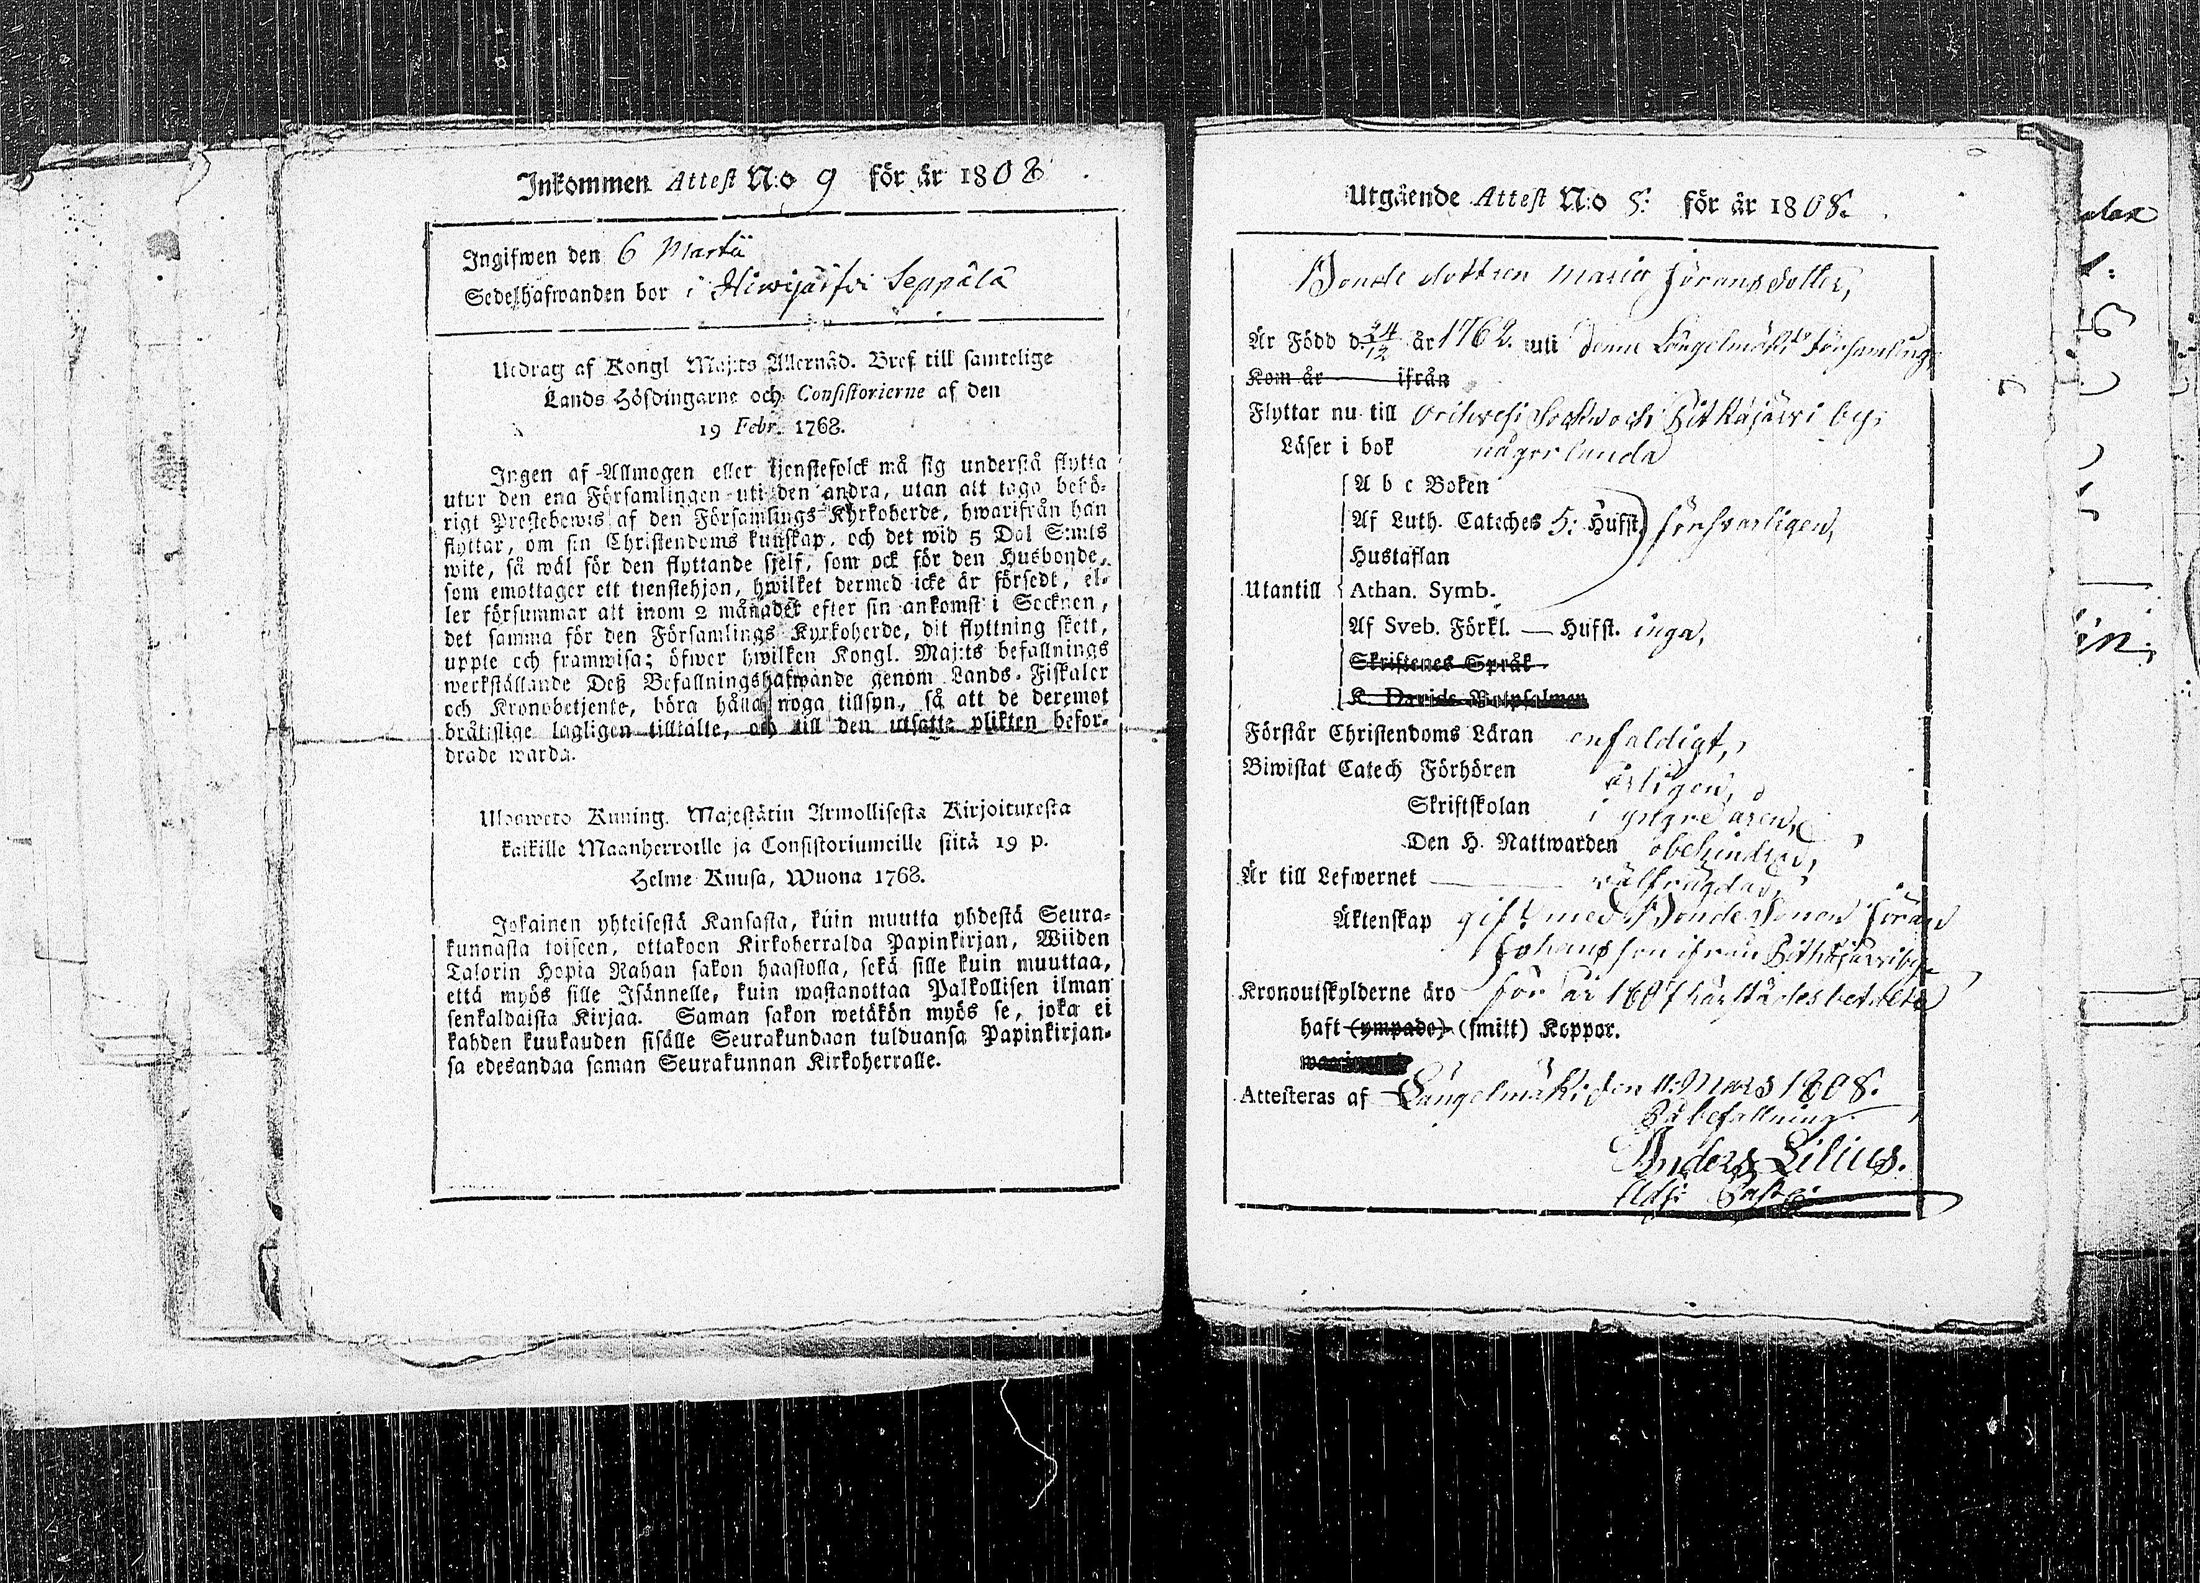 Inkommen Attest N:o 9 för år 1808
Ingifwen den 6 Martii
Sedelhafwanden bor i Hirvijärfvi Seppälä
Utdrag af Kongl Maj:ts Allernåd. Bref till samtelige
Lands Höfdingarne och Consistorierne af den
19 Febr. 1768.
Ingen af Allmogen eller tjenstefolck må sig understå flytta
utur den ena Församlingen uti den andra, utan att taga behö-
rigt Prestebewis af den Församlings Kyrkoherde, hwarifrån han
flyttar, om sin Christendoms kunskap, och det wid 5 Dal S:mts
wite, så wäl för den flyttande sjelf, som ock för den Husbonde,
som emottager ett tienstehjon, hwilket dermed icke är försedt, el-
ler försummar att inom 2 månader efter sin ankomst i Socknen,
det samma för den Församlings Kyrkoherde, dit flyttning skett,
uppte och framwisa; öfwer hwilken Kongl. Maj:ts befallnings
werkställande Deß Befallningshafwande genom Lands-Fiskaler
och Kronobetjente, böra hålla noga tillsyn, så att de deremot
bråtslige lagligen tilltalte, och till den utsatte plikten befor-
drade warda.
Uloswero Kuning. Majestätin Armollisesta Kirjoituxesta
kaikille Maanherroille ja Consistoriumeille siitä 19 p.
Helme Kuusa, Wuona 1768.
Jokainen yhteisestä Kansasta, kuin muutta yhdestä Seura-
kunnasta toiseen, ottakoon Kirkoherralda Papinkirjan, Wiiden
Talarin Hopia Rahan sakon haastolla, sekä sille kuin muuttaa,
että myös sille Isännelle, kuin wastanottaa Palkollisen ilman
senkaldaista Kirjaa. Saman sakon wetäkön myös se, joka ei
kahden kuukauden sisälle Seurakundaan tulduansa Papinkirjan-
sa edesandaa saman Seurakunnan Kirkoherralle.
Utgående Attest N:o 8: för år 1808.
Bonde dottren Maria Jöransdotter,
Är Född d. 24/12 år 1762. uti denne Längelmäki Församling,
Kom år ifrån
Flyttar nu till Orihvesi Sockn och Pitkäjärvi by,
Läser i bok någorlunda
A b c Boken
Af Luth. Cateches 5: Hufst. försvarligen,
Hustaflan
Utantill Athan. Symb.
Af Sveb. Förkl. — Hufst. inga,
Skriftenes Språk
K. Davids Botpsalmen
Förstår Christendoms Läran enfaldigt,
Biwistat Catech Förhören årligen,
Skriftskolan i yngre åren,
Den H. Nattwarden obehindrad,
Är till Lefwernet välfrägdad,
Äktenskap gift med Bonde Sonen Jöran
Johansson ifrån Pitkäjärvi by
Kronoutskylderne äro för år 1807 härstädes betalte
haft (ympade) (smitt) Koppor.
Attesteras af Längelmäki den 11: Mars 1808.
På befallning
Anders Lilius.
Adj: Past: